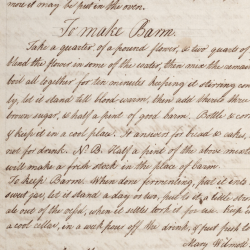 more it may be put in the oven.
To make Barm.
Take a quarter of a pound flower, & two quarts of
blend the flower in some of the water, then mix the remain
boil all together for ten minutes keeping it stirring con
ly, let it stand till blood warm, then add thereto three
brown sugar, & half a pint of good barm. Bottle & cor
& keep it in a cool place. It answers for bread & cakes
not for strong. N.B. Half a pint of the above mixtu
will make a fresh stock in the place of barm.
To keep Barm. When done fermenting, put it into
sweet jar, let it stand a day or two, put to it a little
ale one of the off, when it settles cork it for use. Keep i
a cool cellar, in a week pour off the drink, & put fresh
Mary Wilmot